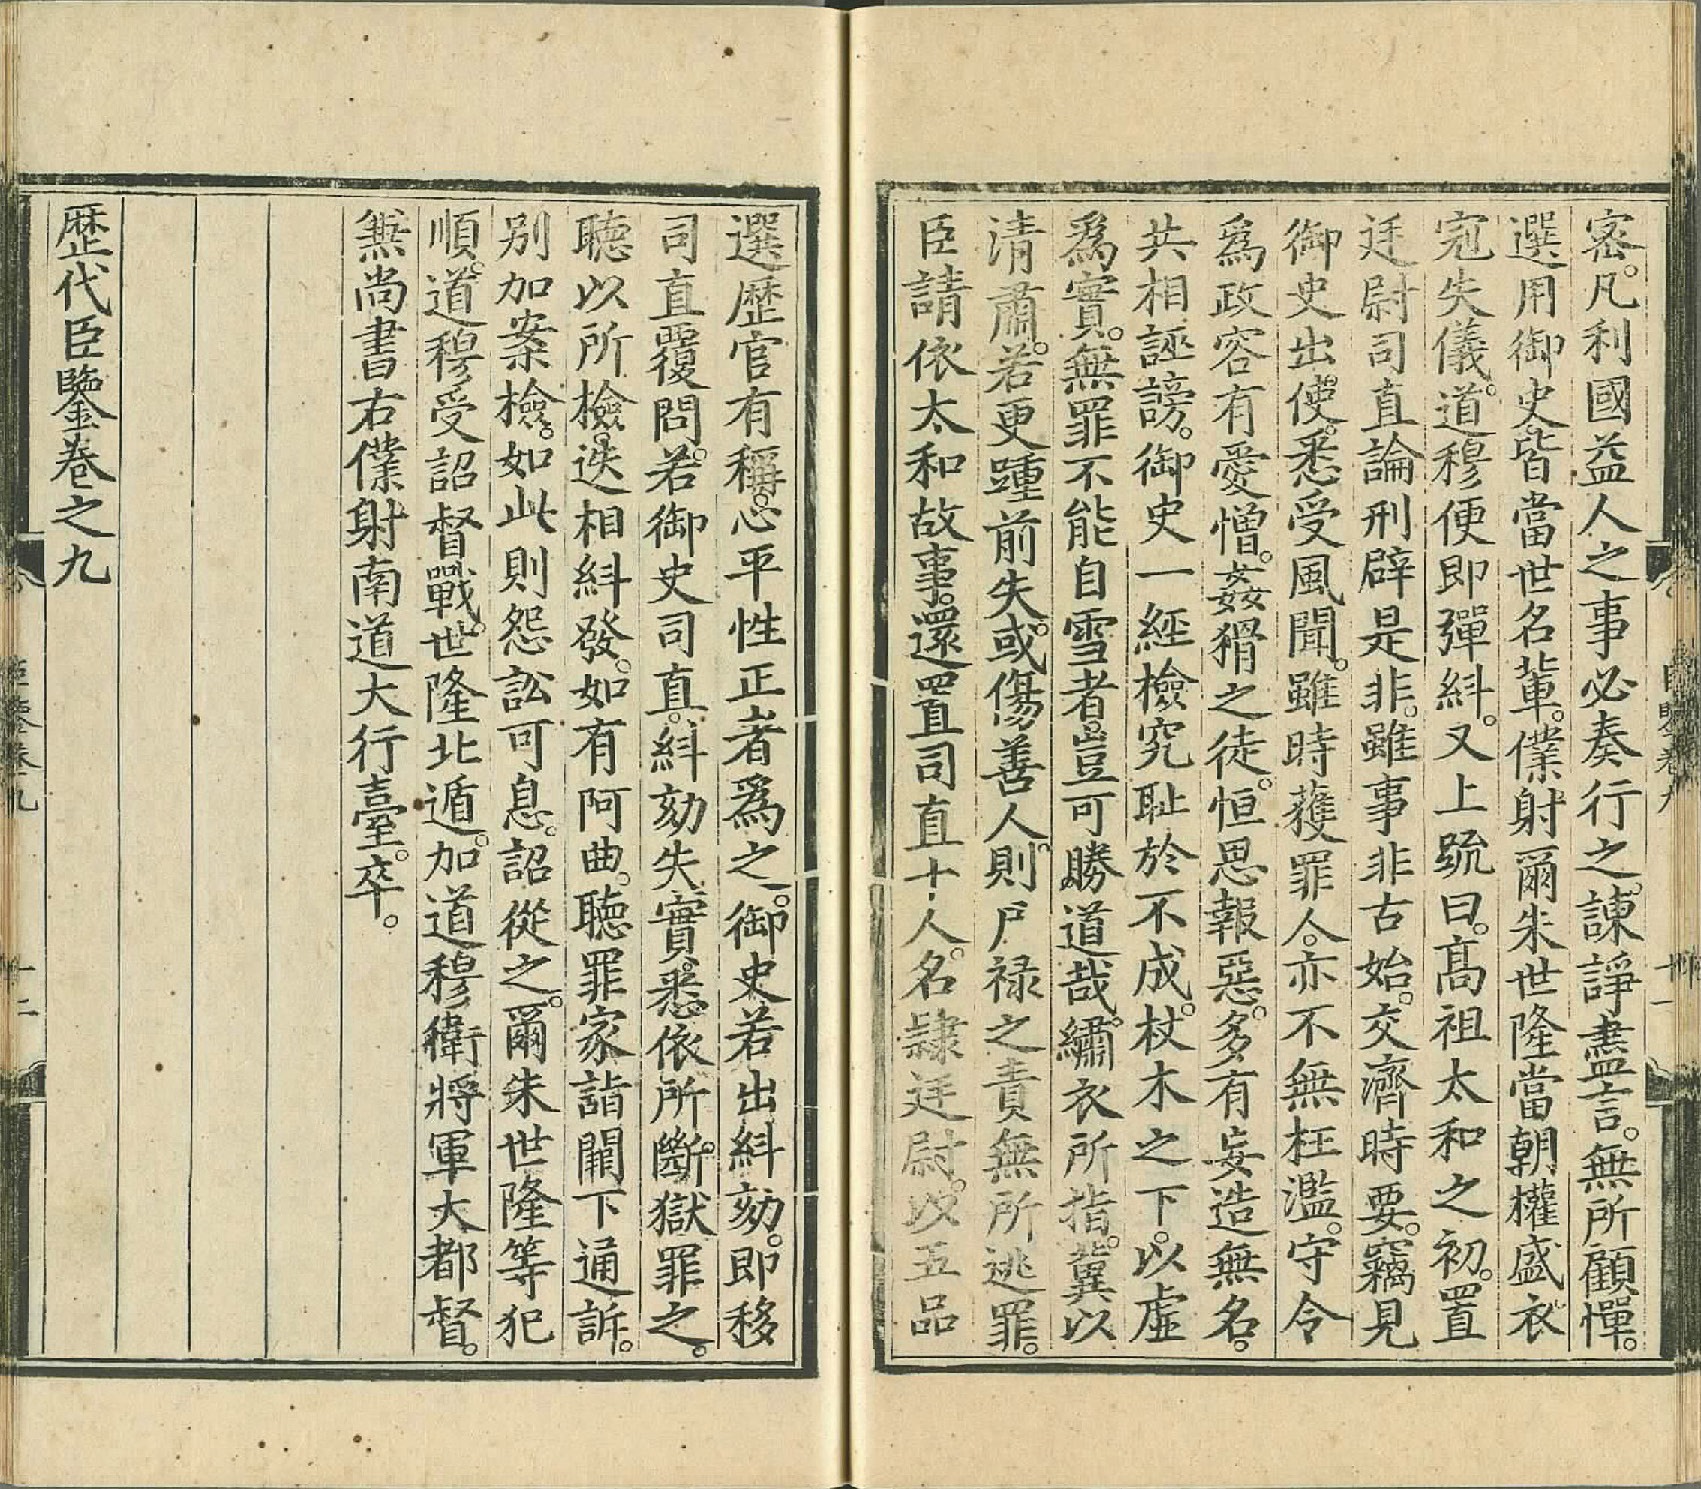 密。凡利國益人之事必奏行之。諫諍盡言。無所顧憚。
選用御史。皆當世名輩。僕射爾朱世隆當朝權盛。衣
冠失儀。道穆便即彈糾。又上䟽曰。高祖太和之初。置
廷尉司直論刑辟是非。雖事非古始。交濟時要。竊見
御史出使。悉受風聞。雖時獲罪人。亦不無枉濫。守令
為政。容有愛憎。姦猾之徒。恒思報惡。多有妄造無名。
共相誣謗。御史一經檢究。耻於不成。杖木之下。以虛
為實。無罪不能自雪者。豈可勝道哉。繡衣所指。冀以
清肅。若更踵前失。或傷善人。則尸祿之責。無所逃罪。
臣請依太和故事。還置司直十人。名隷廷尉。以五品
選歷官有稱。心平性正者為之。御史若出糾劾。即移
司直覆問。若御史司直。糾劾失實。悉依所斷。獄罪之。
聽以所檢。迭相糾發。如有阿曲。聽罪家詣闕下通訴。
別加案檢。如此則怨訟可息。詔從之。爾朱世隆等犯
順。道穆受詔督戰。世隆北遁。加道穆衛將軍大都督。
兼尚書右僕射南道大行臺。卒。
歷代臣鑒卷之九
十一
臣鑒卷九
十二